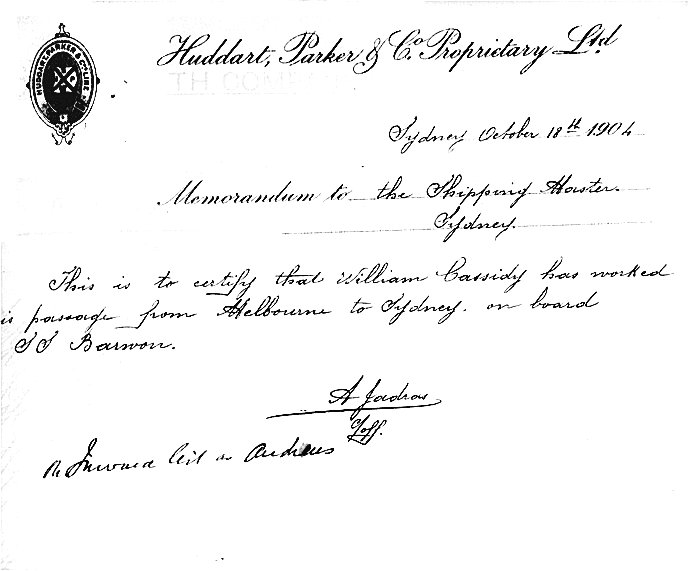 HUDDART, PARKER & CO LINE
Huddart, Parker & Co. Proprietary Ltd
Sydney October 18th 1904
Memorandum to the Shipping Master.
Sydney.
This is to certify that William Cassidy has worked
is passage from Melbourne to Sydney. on board
SS Barwon.
A
Inward list as Andrews